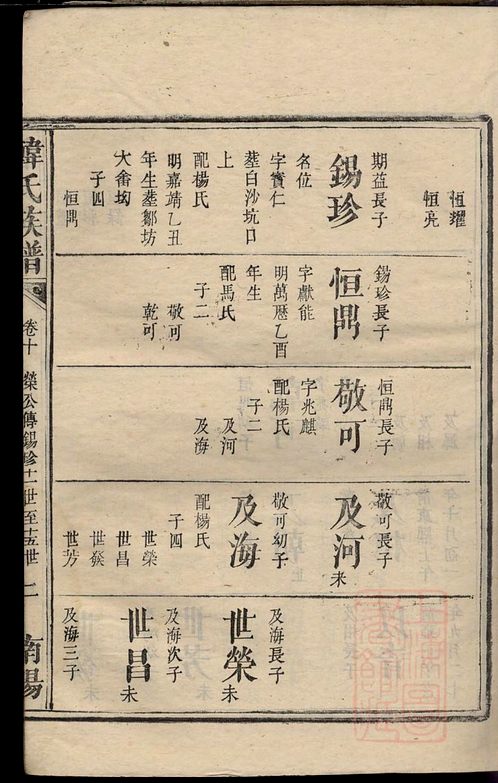 恒耀
恒亮
期益長子
錫珍
名位
字實仁
葬白沙坑口
上
配楊氏
明嘉靖乙丑
年生葬鄒坊
大畬坳
子四
恒鼎
錫珍長子
恒鼎
字獻能
明萬歷乙酉
年生
配馬氏
子二
敬可
乾可
恒鼎長子
敬可
字兆麒
配楊氏
子二
及河
及海
敬可長子
及河
未
敬可幼子
及海
配楊氏
子四
世榮
世昌
世發
世芳
及海長子
世榮
未
及海次子
世昌
未
及海三子
氏族譜
卷十
榮公傳錫珍十一世至十五世
二
南陽